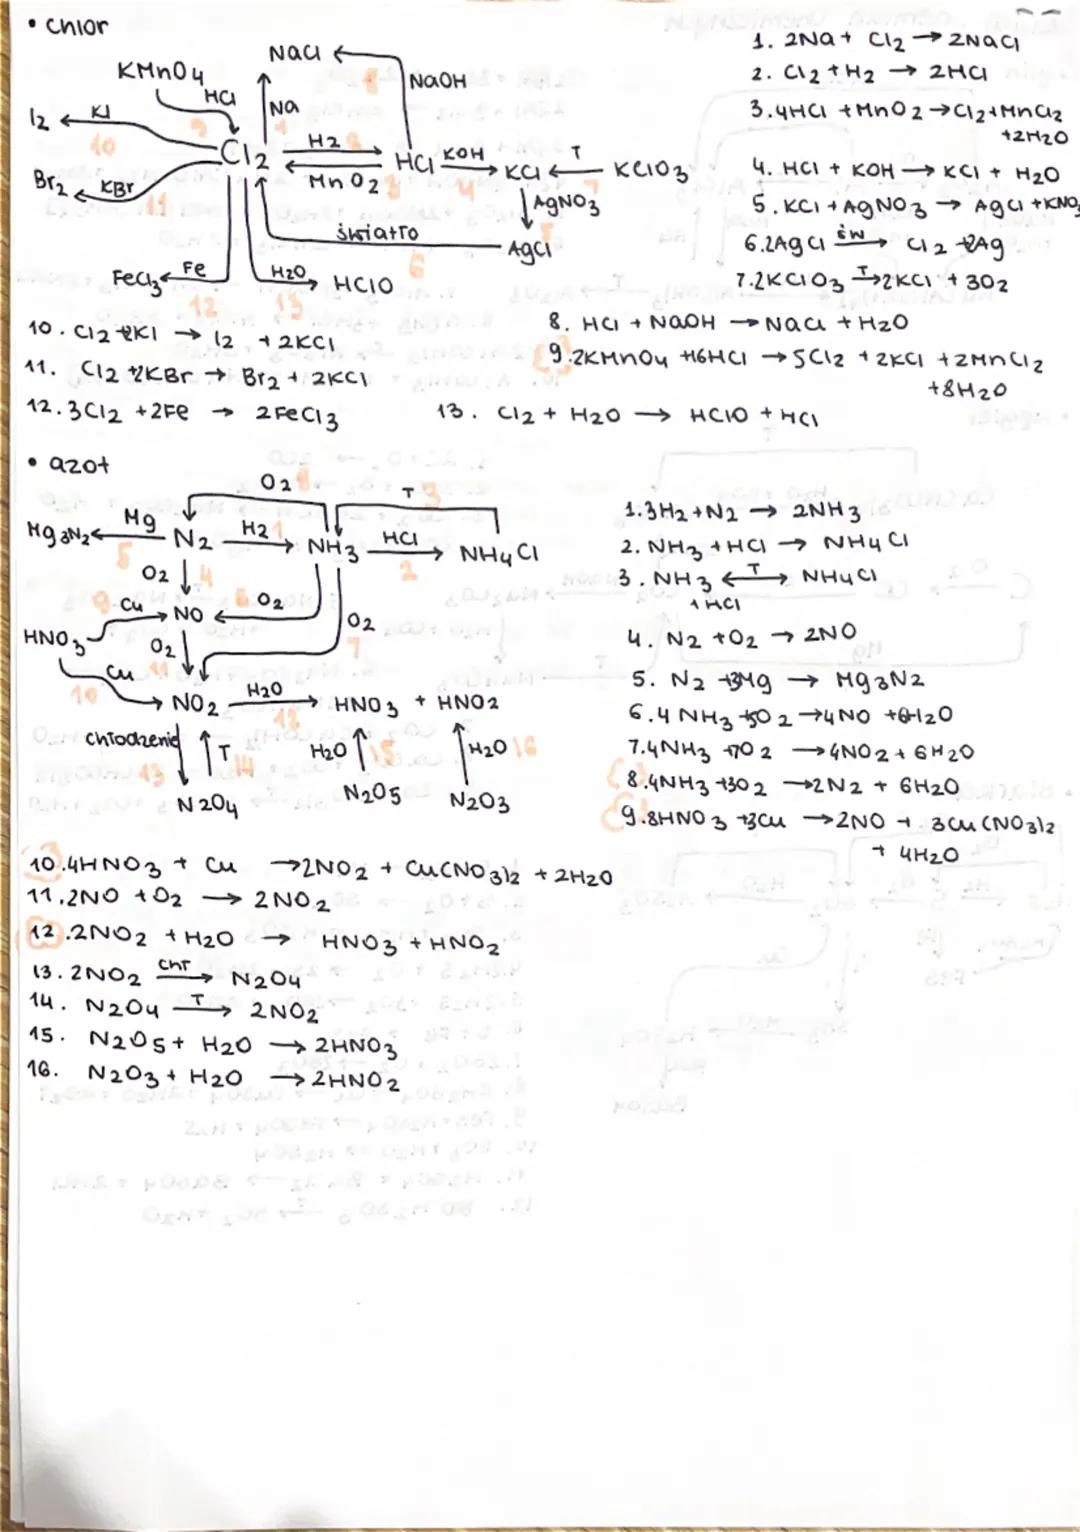 • chlor
KMnO4 HCl
NaCl
NaOH
Na
I2 KI
10 9 1 8
Cl2 H2 HCl KOH KCl T KClO3
MnO2 3 4 7
Br2 KBr
11
AgNO3
światło AgCl
6 5
FeCl3 Fe H2O HClO
12 13
1. 2Na + Cl2 → 2NaCl
2. Cl2 + H2 → 2HCl
3. 4HCl + MnO2 → Cl2 + MnCl2
+2H2O
4. HCl + KOH → KCl + H2O
5. KCl + AgNO3 → AgCl + KNO3
6. 2AgCl św→ Cl2 + 2Ag
7. 2KClO3 T→ 2KCl + 3O2
8. HCl + NaOH → NaCl + H2O
9. 2KMnO4 + 16HCl → 5Cl2 + 2KCl + 2MnCl2
+8H2O
10. Cl2 + 2KI → I2 + 2KCl
11. Cl2 + 2KBr → Br2 + 2KCl
12. 3Cl2 + 2Fe → 2FeCl3
13. Cl2 + H2O → HClO + HCl
• azot
O2 8 T 3
Mg3N2 Mg N2 H2 1 NH3 HCl NH4Cl
5 2
O2 4
9 Cu NO 6 O2 O2
HNO3 O2 7
Cu 11
10 NO2 H2O HNO3 + HNO2
12
chłodzenie T H2O 15 H2O 16
13 14
N2O4 N2O5 N2O3
1. 3H2 + N2 → 2NH3
2. NH3 + HCl → NH4Cl
3. NH3 ←T→ NH4Cl
+ HCl
4. N2 + O2 → 2NO
5. N2 + 3Mg → Mg3N2
6. 4NH3 + 5O2 → 4NO + 6H2O
7. 4NH3 + 7O2 → 4NO2 + 6H2O
8. 4NH3 + 3O2 → 2N2 + 6H2O
9. 8HNO3 + 3Cu → 2NO + 3Cu(NO3)2
+ 4H2O
10. 4HNO3 + Cu → 2NO2 + Cu(NO3)2 + 2H2O
11. 2NO + O2 → 2NO2
12. 2NO2 + H2O → HNO3 + HNO2
13. 2NO2 chł→ N2O4
14. N2O4 T→ 2NO2
15. N2O5 + H2O → 2HNO3
16. N2O3 + H2O → 2HNO2